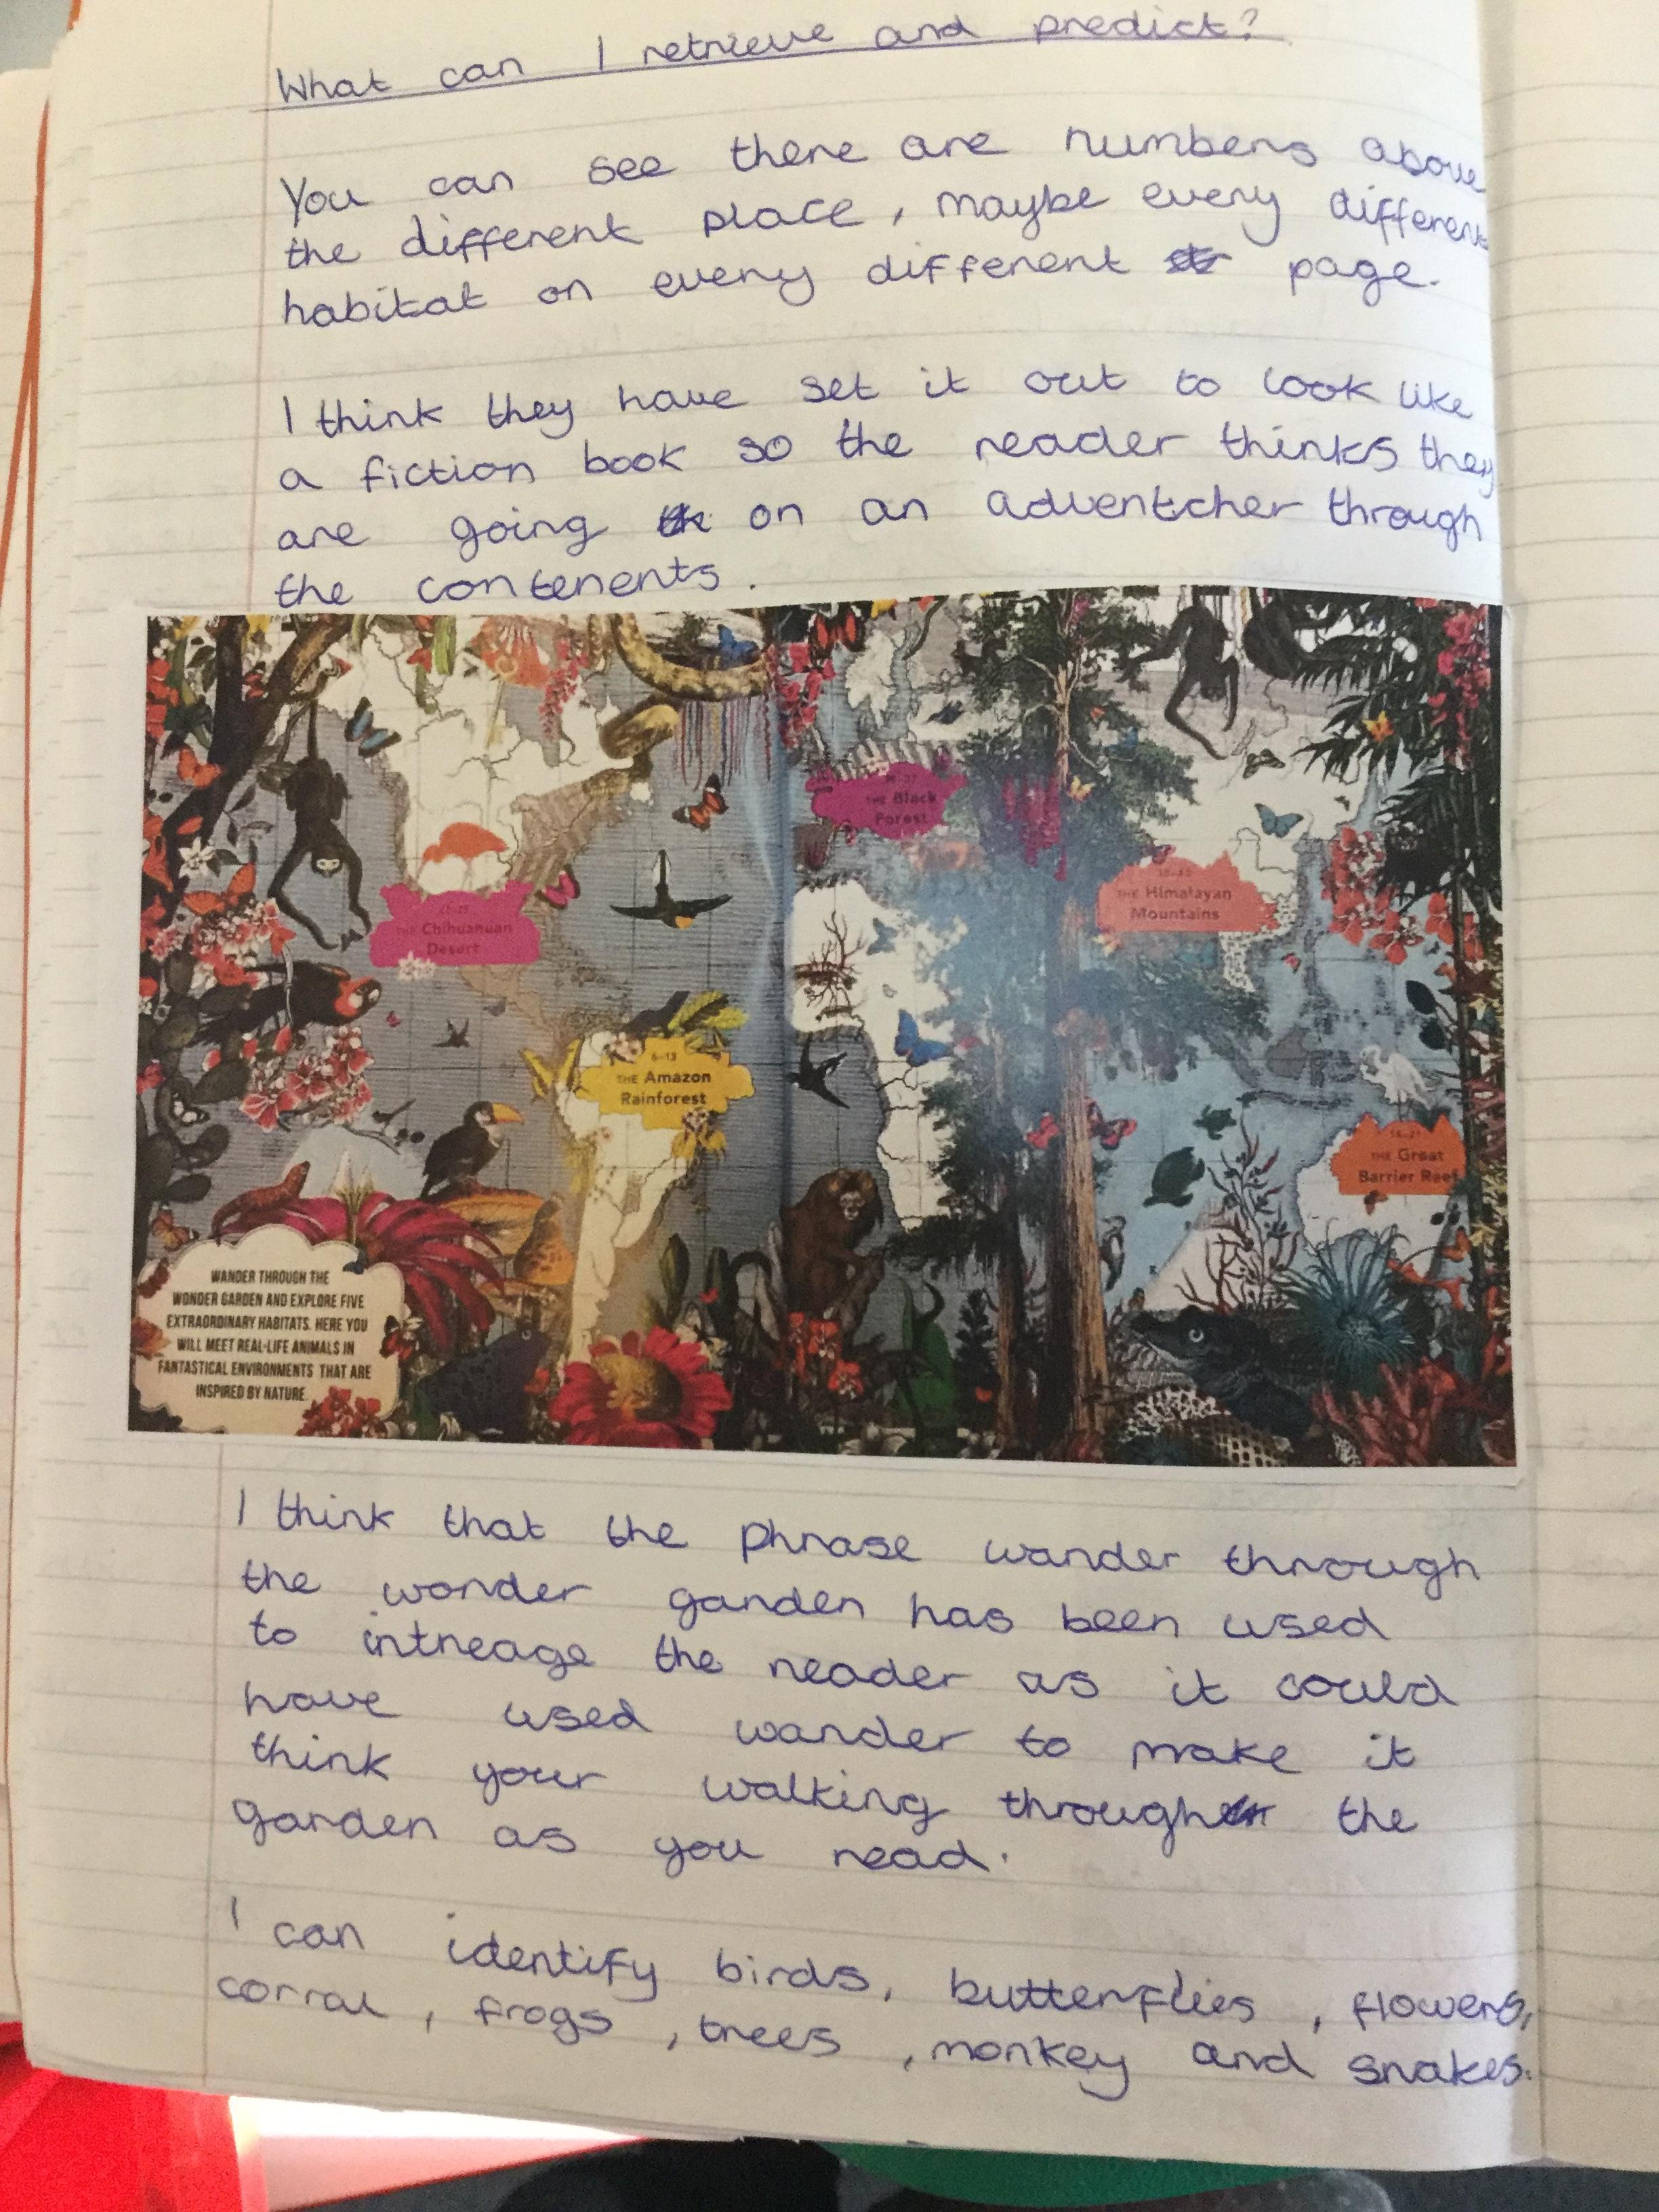 What can I retrieve and predict?
You can see there are numbers above
the different place, maybe every different
habitat on every different page.
I think they have set it out to look like
a fiction book so the reader thinks they
are going on an adventcher through
the contenents.
THE Black
Forest
THE Himalayan
Mountains
THE Chihuahuan
Desert
6-13
THE Amazon
Rainforest
14-21
THE Great
Barrier Reef
WANDER THROUGH THE
WONDER GARDEN AND EXPLORE FIVE
EXTRAORDINARY HABITATS. HERE YOU
WILL MEET REAL-LIFE ANIMALS IN
FANTASTICAL ENVIRONMENTS THAT ARE
INSPIRED BY NATURE.
I think that the phrase wander through
the wonder garden has been used
to intreage the reader as it could
have used wander to make it
think your walking through the
garden as you read.
I can identify birds, butterflies, flowers,
corral, frogs, trees, monkey and snakes.